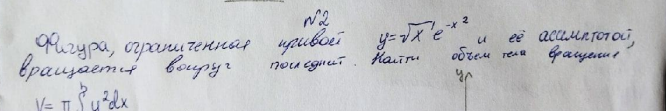 №2
Фигура, ограниченная кривой y=√x e^{-x^2} и её асимптотой,
вращается вокруг последней. Найти объем тела вращения
y
V = π∫y²dx